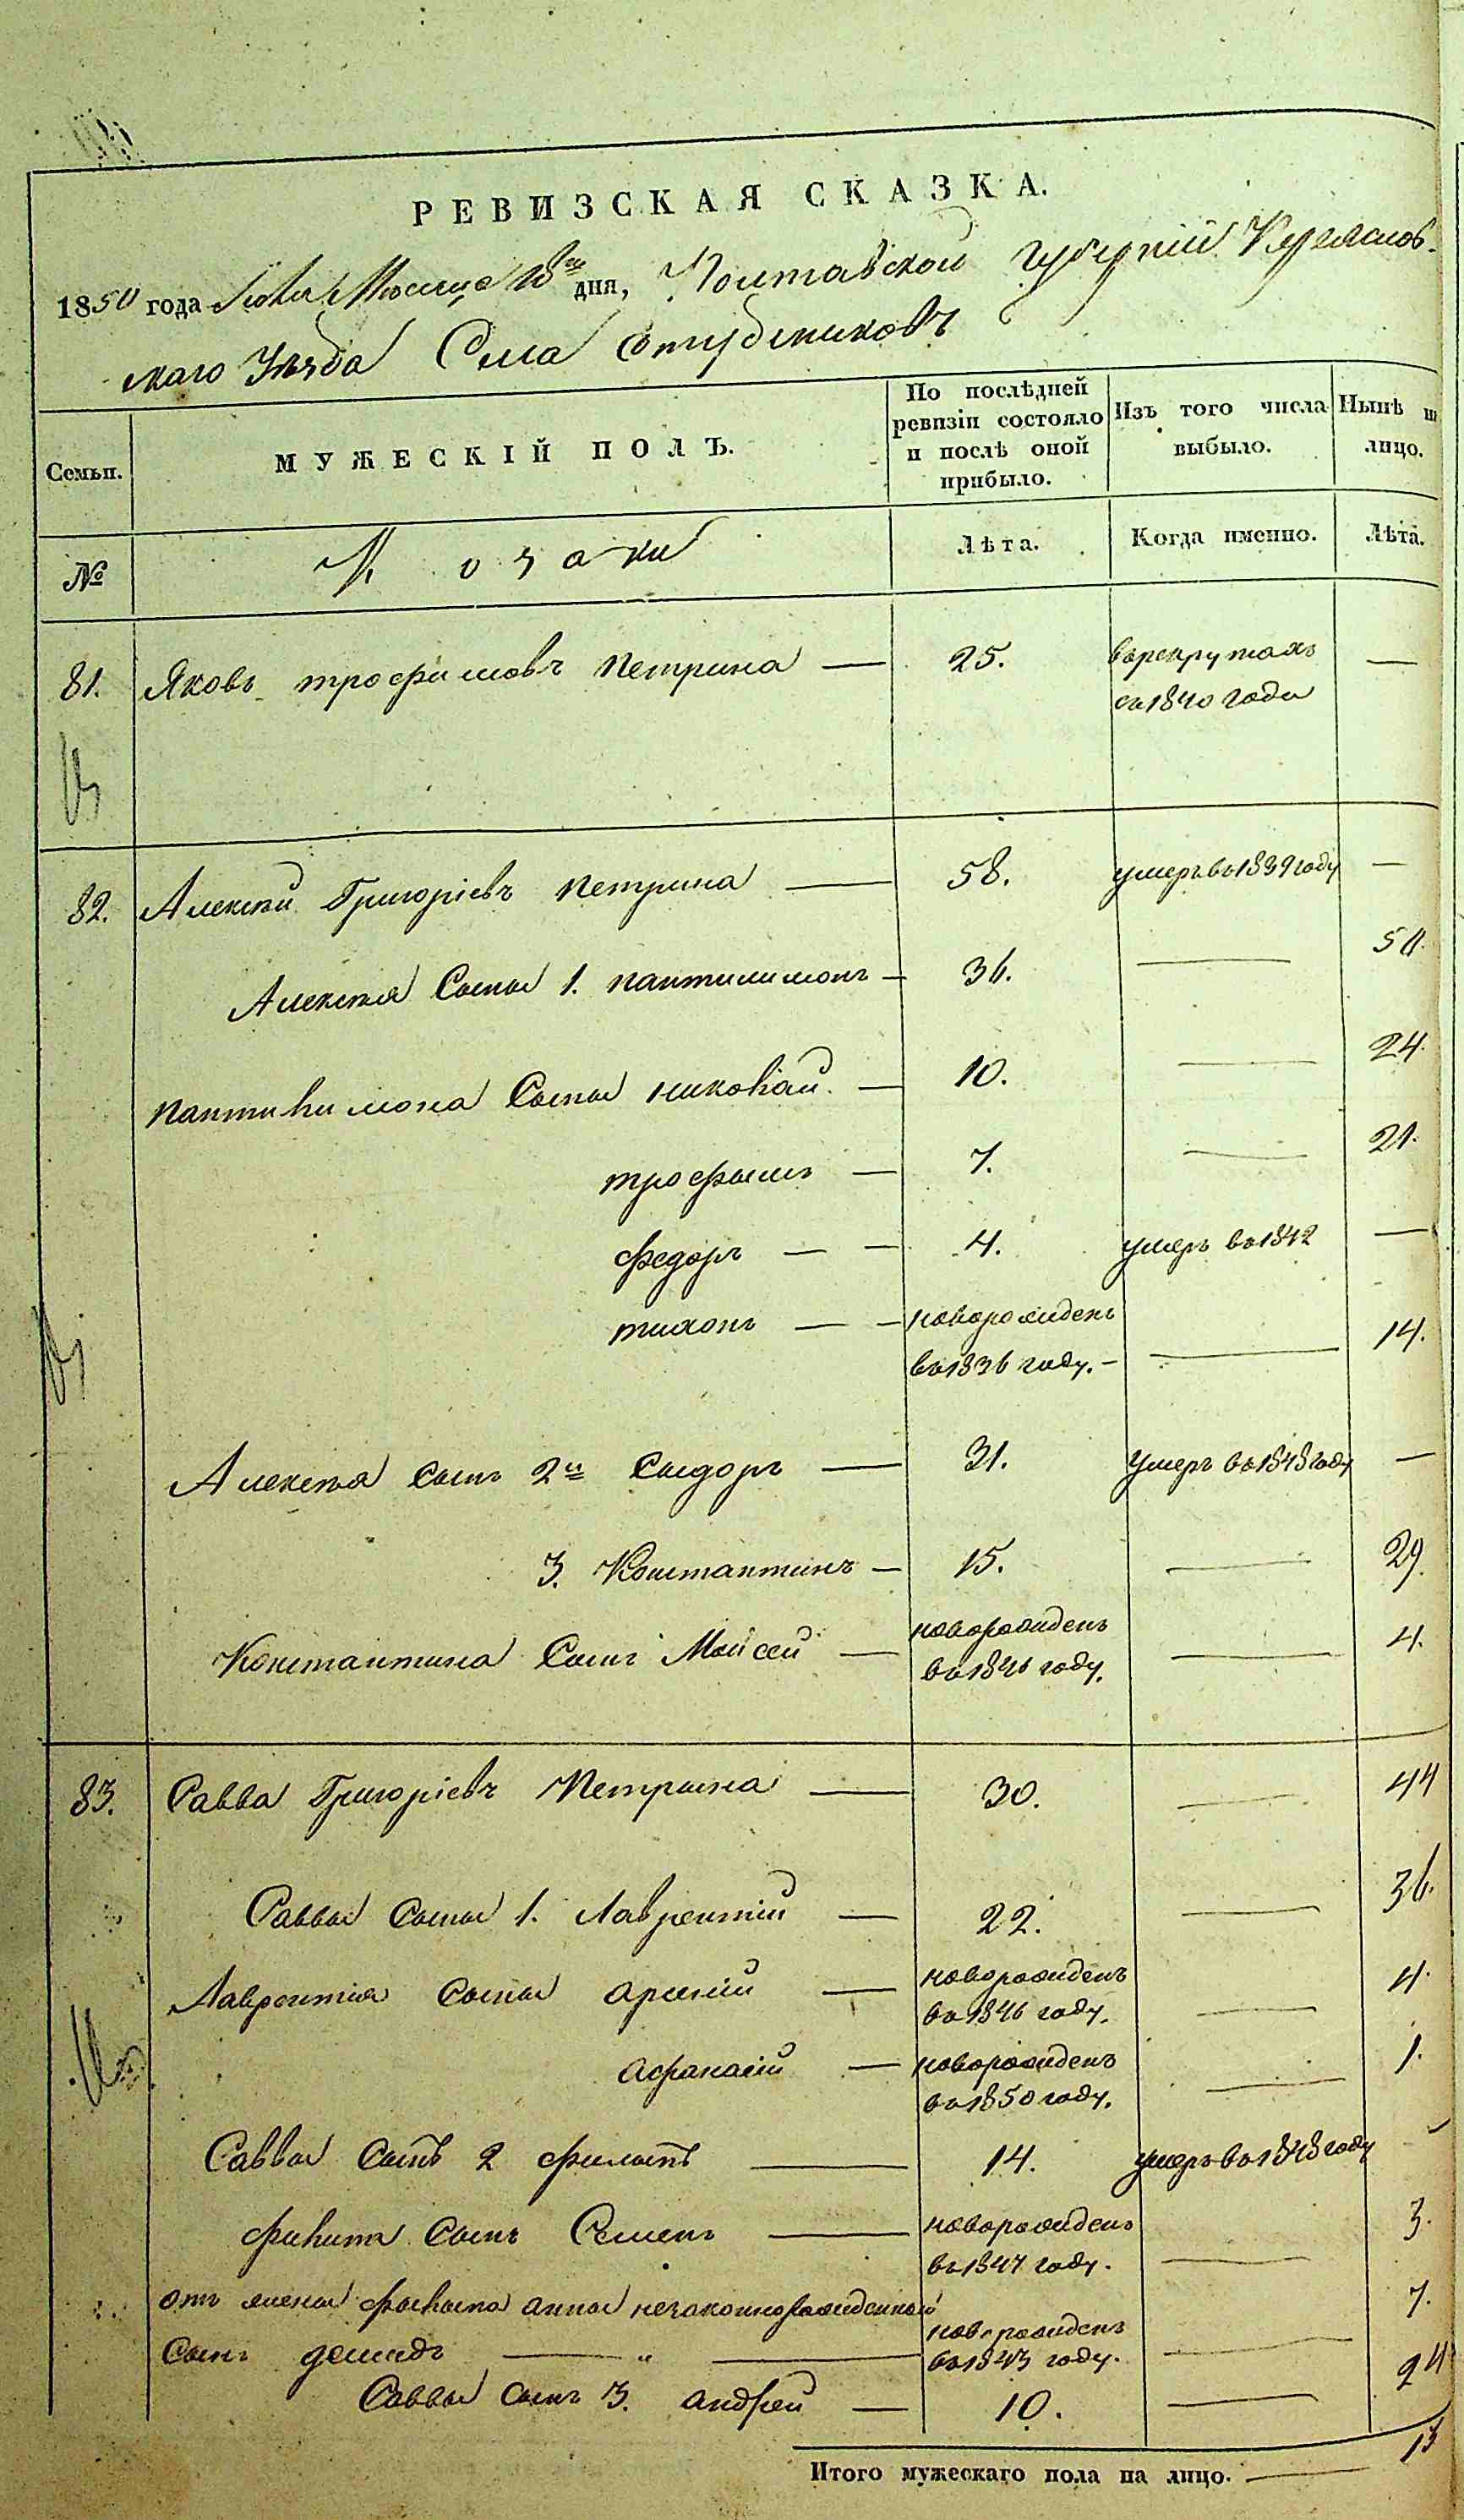 РЕВИЗСКАЯ СКАЗКА.
1850 года Мѣсяца дня, Полтавской губерніи Переяслов-
скаго Уѣзда Села Студениковъ
Семьи. МУЖЕСКІЙ ПОЛЪ. По послѣдней ревизіи состояло и послѣ оной прибыло. Изъ того числа выбыло. Нынѣ лицо.
№ Козаки Лѣта. Когда именно. Лѣта.
81. Яковъ трофимовъ петрина — 25. врекрутахъ —
съ 1840 года
82. Алексѣй Григоріевъ петрина — 58. умеръ во 1839 году —
Алексѣя Сыны 1. пантилимонъ — 36. — 50.
пантилимона Сыны николай — 10. — 24.
трофимъ — 7. — 21.
федоръ — — 4. умеръ во 1842 —
тихонъ — — новорожденъ — 14.
во 1836 году. —
Алексѣя сынъ 2й Сыдоръ — 31. умеръ во 1848 году —
3. Константинъ — 15. — 29.
Константина Сынъ Мойсей — новорожденъ — 4.
во 1846 году.
83. Савва Григоріевъ Петрина — 30. — 44
Саввы Сыны 1. Лаврентій — 22. — 36.
Лаврентія Сыны арсеній — новорожденъ — 4.
во 1846 году.
афанасій — новорожденъ — 1.
во 1850 году.
Саввы Сынъ 2 филатъ — 14. умеръ во 1848 году -
филата Сынъ Семенъ — новорожденъ — 3.
во 1847 году.
отъ жены филата анны незаконнорожденной 7.
новорожденъ
Сынъ демидъ — " — во 1843 году. —
Саввы Сынъ 3. андрей — 10. — 24
Итого мужескаго пола на лицо. — 13